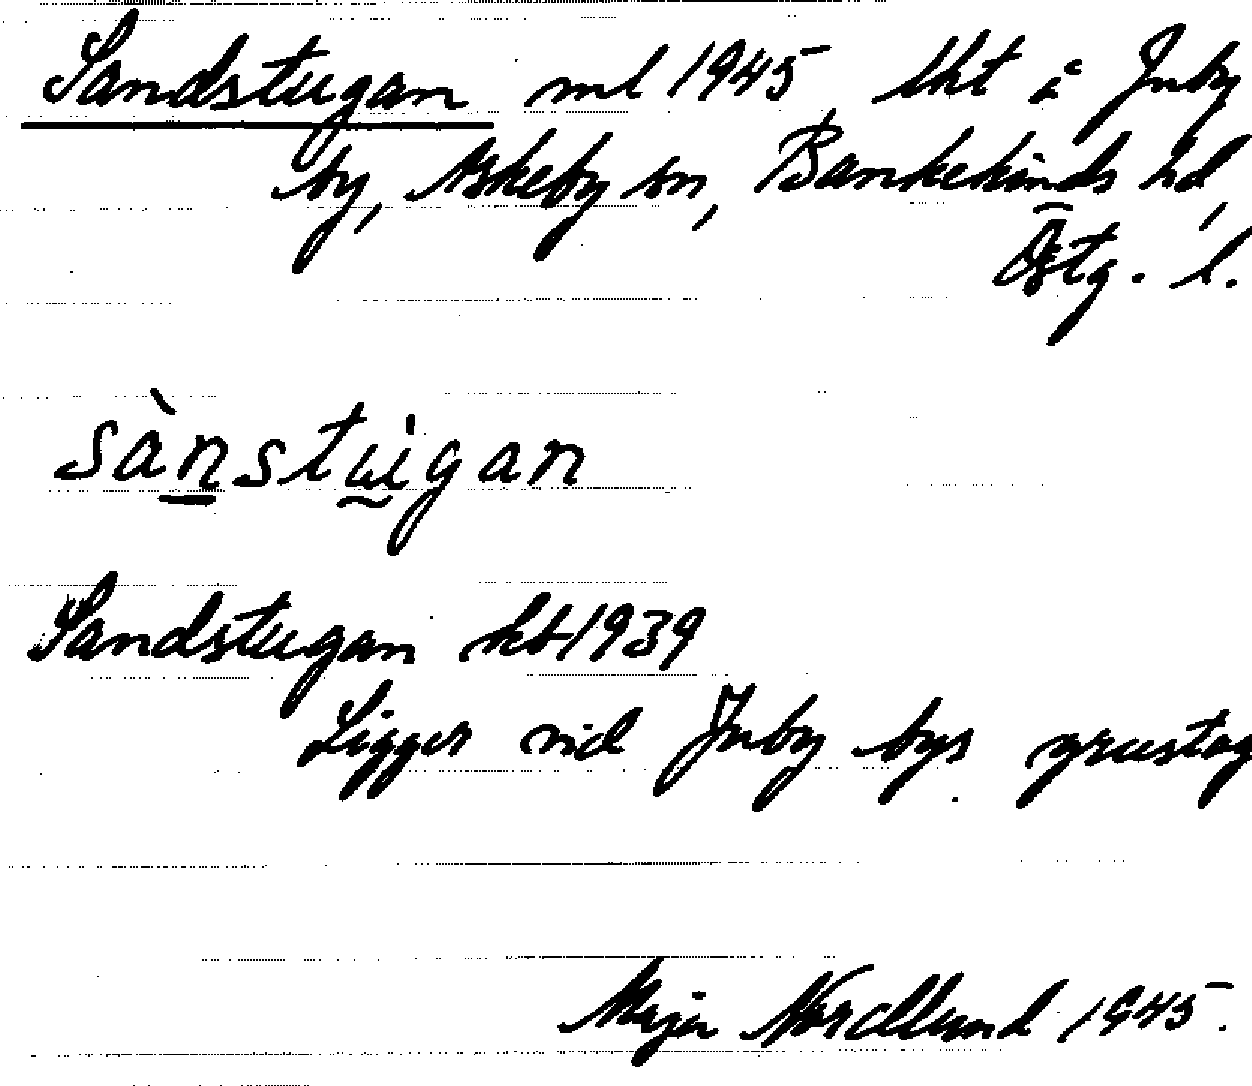 Sandstugan ml 1945, lht å Juby
by, Askeby sn, Bankekinds hd,
Östg. l.
sànstu̇gan
Sandstugan kbl 1939
Ligger vid Juby bys grustag
Maja Nordlund 1945.